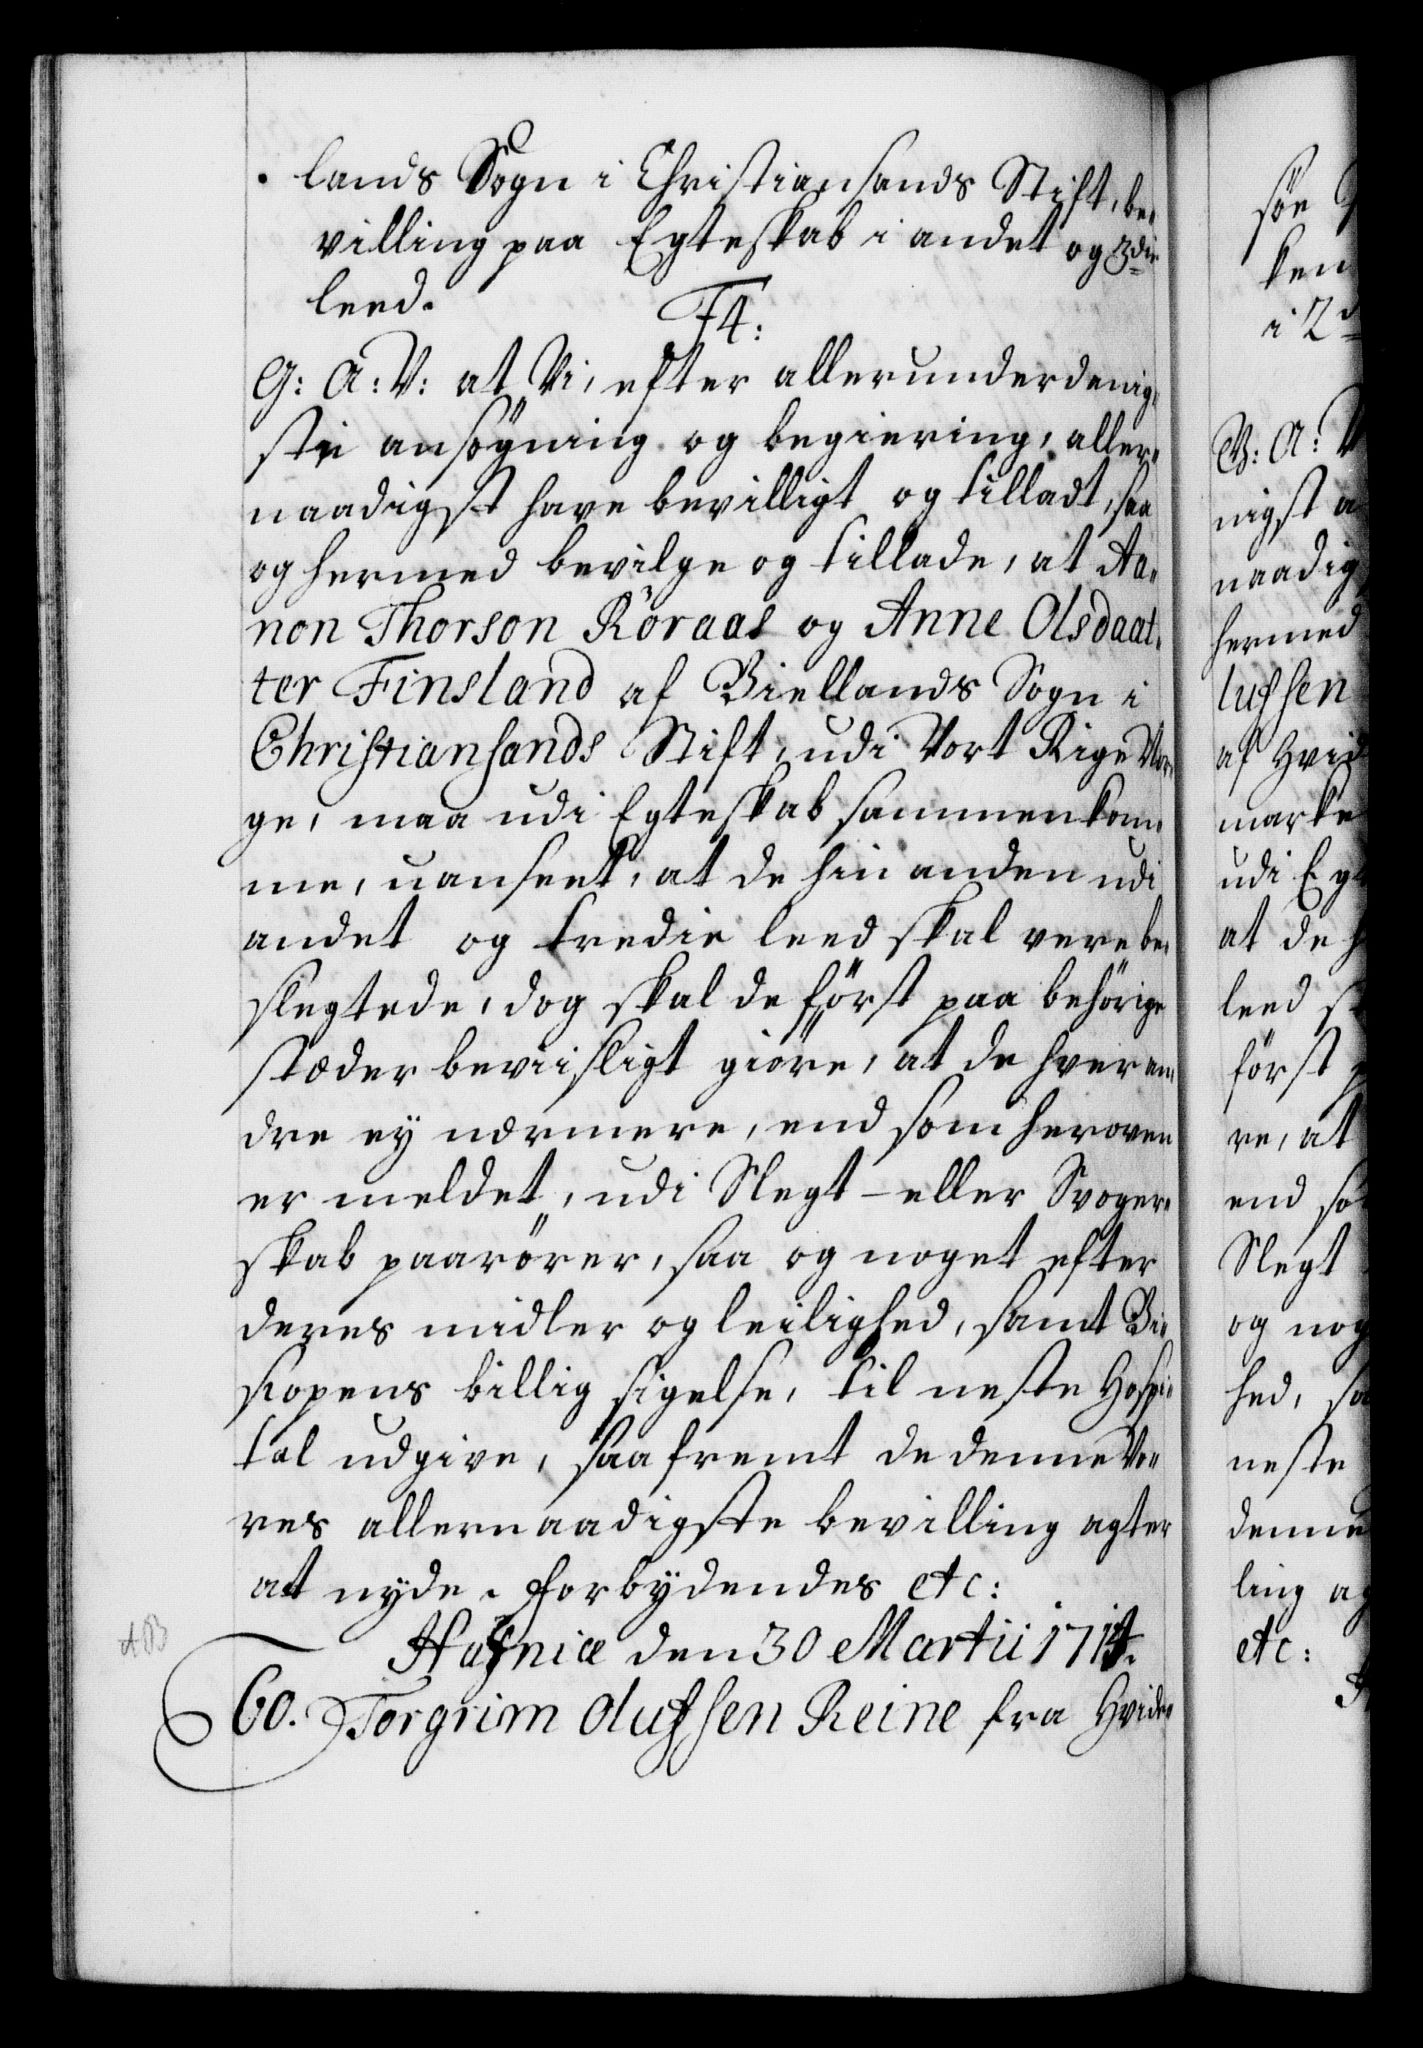 lands Sogn i Christiansands Stift, be„
villing paa Egteskab i andet og 3die
leed.
F4:
G: A: V: at Vi, efter allerunderdanig„
ste ansögning og begiering, aller„
naadigst have bevilligt og tilladt, saa
og hermed bevilge og tillade, at Aa„
non Thorson Röraas og Anne Olsdaat„
ter Finsland af Biellands Sogn i
Christiansands Stift, udi Vort Rige Nor„
ge, maa udi Egteskab sammenkom„
me, uanseet, at de hin anden udi
andet og tredie leed skal vere be„
slegtede, dog skal de först paa behörige
stæder beviisligt giöre, at de hveran„
dre ey nærmere, end som heroven
er meldet, udi Slegt- eller Svoger„
skab paarörer, saa og noget efter
deres midler og leilighed, samt Bi„
skopens billig sigelse, til neste Hospi„
tal udgive, saafremt de denne Vo„
res allernaadigste bevilling agter
at nyde. Forbydendes etc:
Hafniæ den 30 Martii 1714.
AB
60. Torgrim Olufsen Reine fra Hvide„
söe
ken
i 2d
V: A: V
nigst a
naadig
hermed
lufsen
af Hvid
marke
udi Egt
at de h
leed s
först p
re, at
end so
Slegt
og nog
hed, sa
neste
denne
ling ag
etc: